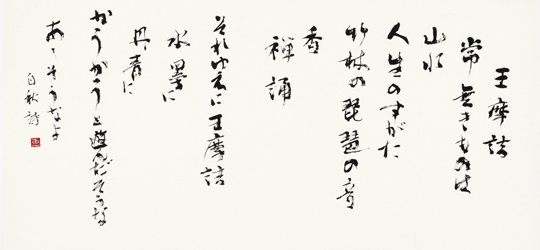 王摩詰
常無きものは
山水
人生のすがた
竹林の琵琶の音
香
禪誦
それゆゑに王摩詰
水墨に
丹青に
かうかうと遊んだそうな
あゝそうなよ
白秋詩